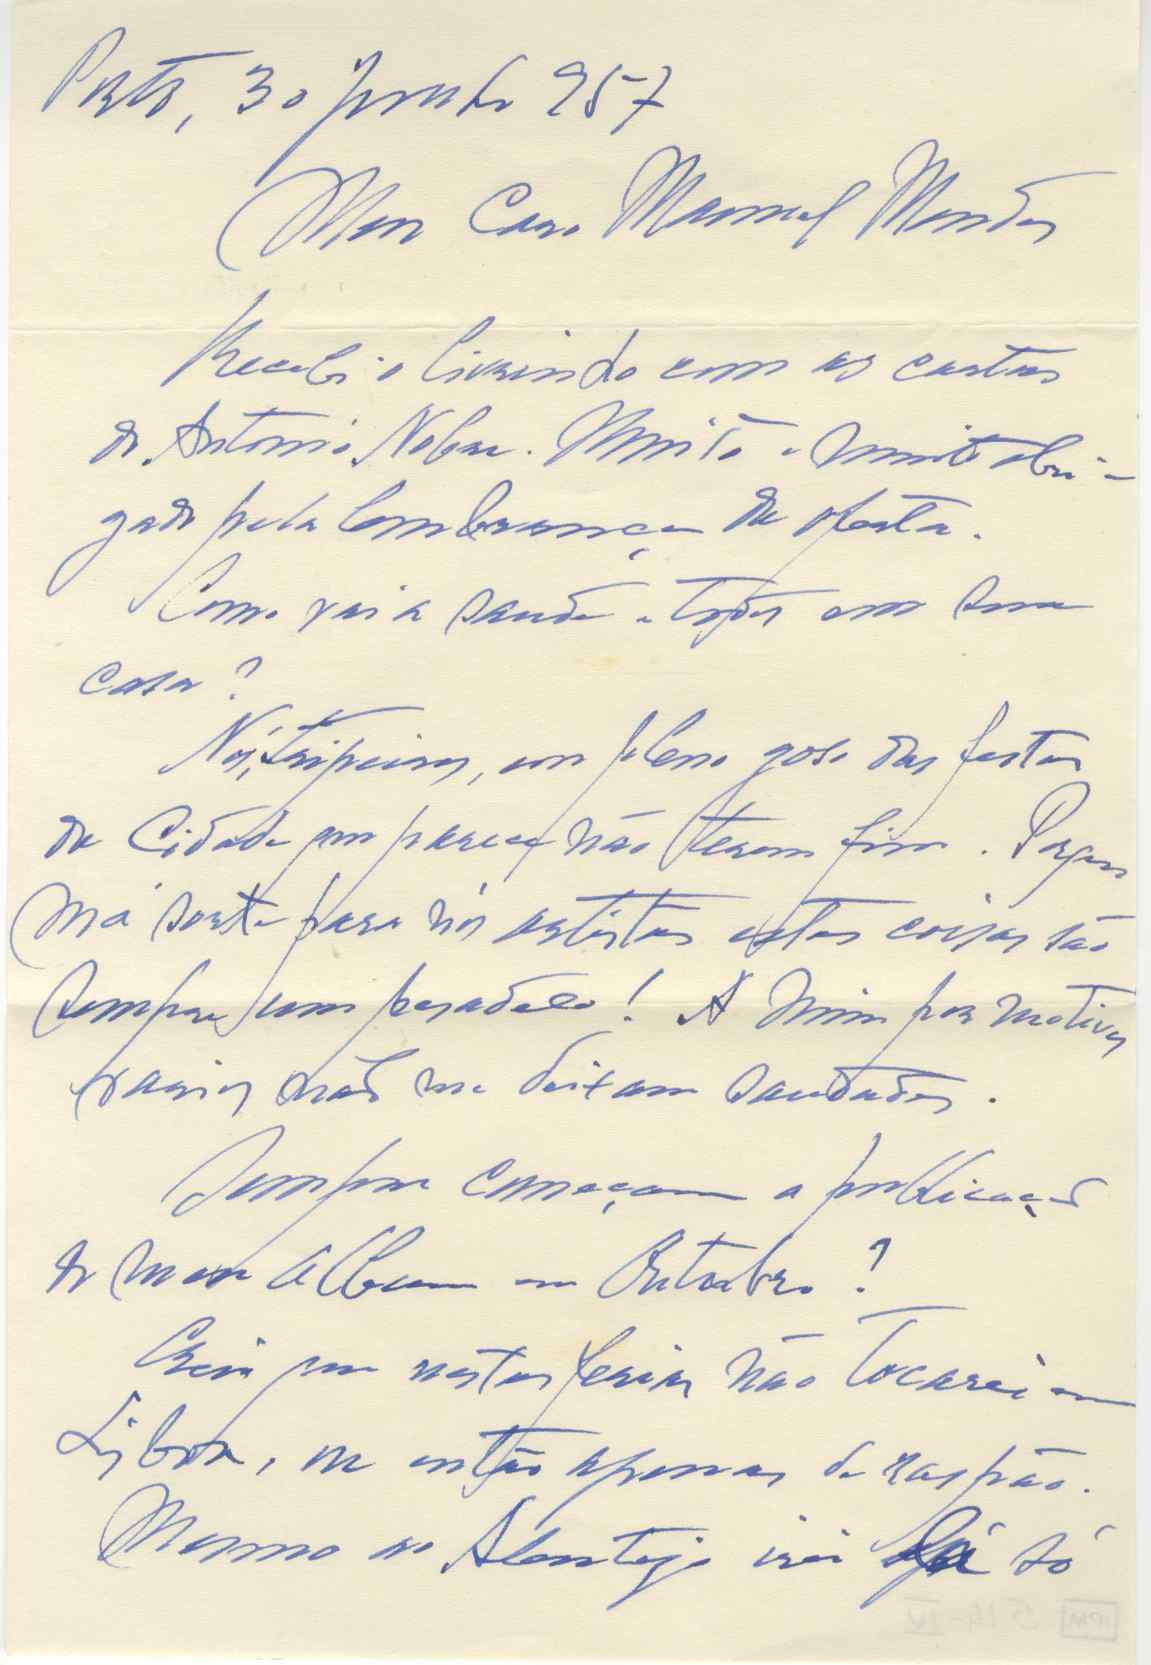 Porto, 30 Junho 957
Meu Caro Manuel Mendes
Recebi o livrinho com as cartas
do Antonio Nobre. Muito e muito obri-
gado pela lembrança da oferta.
Como vai a saude e todos em sua
casa?
Nós, tripeiros, em pleno goso das festas
da Cidade que parece não terem fim. Por
má sorte para nós artistas estas coisas são
sempre um pesadelo! A mim por motivos
varios não me deixam saudades.
Sempre começam a publicação
do meu album em Outubro?
Creio que nestas ferias não tocarei em
Lisboa, ou então apenas de raspão.
Mesmo ao Alentejo irei lá só